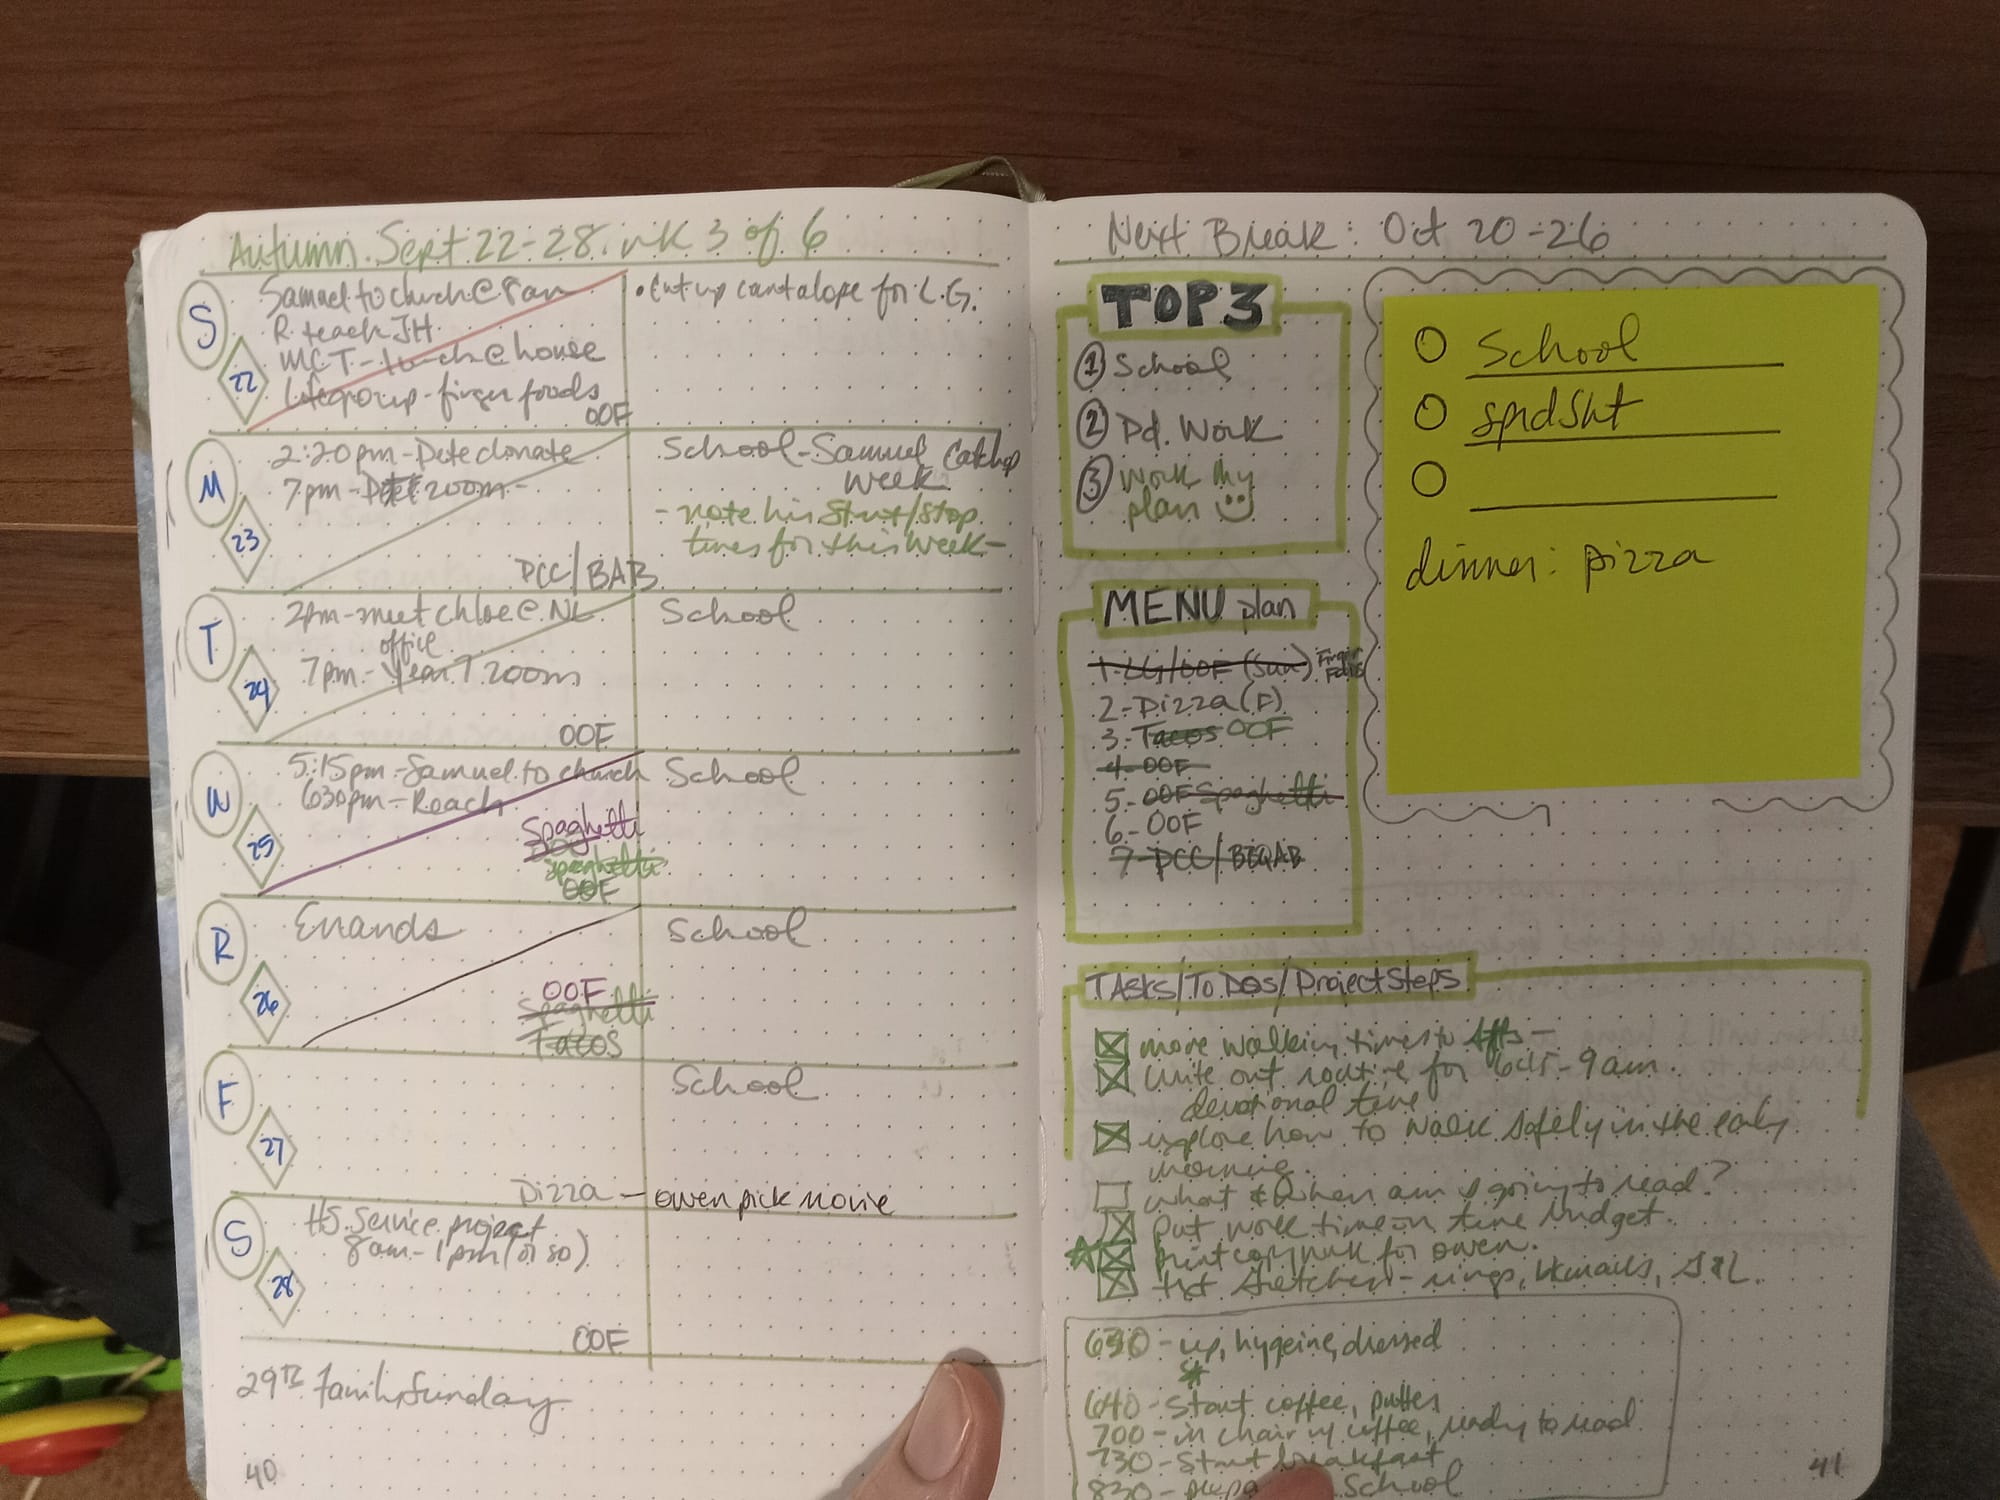 Autumn. Sept 22-28. wk 3 of 6
S
22
Samuel to church @ 8am
R. teach JH
MCT - lunch @ house
Lifegroup - finger foods
OOF
• Cut up cantalope for L.G.
M
23
2:20pm - Pete donate
7pm - Pete zoom -
PCC/BAB
School - Samuel Catchup
week
- note his Start/Stop
times for this week -
T
24
2pm - meet Chloe @ NL
office
7pm - Year 7 zoom
OOF
School
W
25
5:15pm - Samuel to church
630pm - Reach
Spaghetti
spaghetti
OOF
School
R
26
Errands
OOF
Spaghetti
Tacos
School
F
27
School
Pizza - owen pick movie
S
28
HS Service project
8am - 1pm (or so)
OOF
29th Family Sunday
40
Next Break: Oct 20-26
TOP 3
1 School
2 Pd. Work
3 Work my
plan
School
sprdsht
dinner: pizza
MENU plan
1-LG/OOF (Sun) Finger
Foods
2-Pizza (F)
3-Tacos OOF
4-OOF
5-OOF Spaghetti
6-OOF
7-PCC/BEQAB
TASKS/To Dos/Project Steps
more walking times to
write out routine for 645-9am
devotional time
explore how to walk safely in the early
morning.
what & when am I going to read?
put work time on time budget.
print copywk for owen.
stretches - rings,
630 - up, hygeine, dressed
*
640 - Start coffee,
700 - in chair w/ coffee, ready to read
730 - Start breakfast
830 - School
41